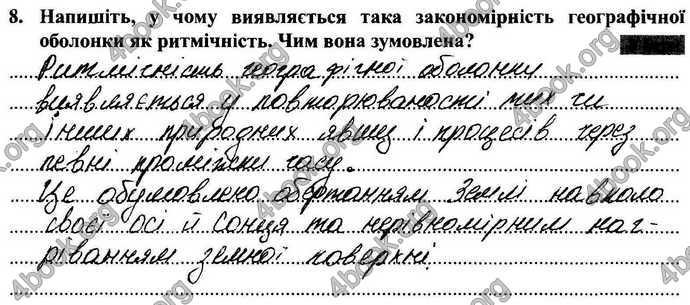 8. Напишіть, у чому виявляється така закономірність географічної
оболонки як ритмічність. Чим вона зумовлена?
Ритмічність географічної оболонки
виявляється у повторюваності тих чи
інших природних явищ і процесів через
певні проміжки часу.
Це обумовлено обертанням Землі навколо
своєї осі й Сонця та нерівномірним наг-
ріванням земної поверхні.
4book.org